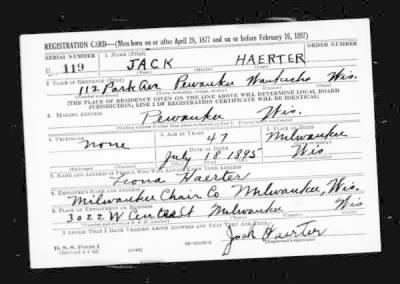 REGISTRATION CARD—(Men born on or after April 28, 1877 and on or before February 16, 1897)
SERIAL NUMBER 1. NAME (Print) ORDER NUMBER
U 119 JACK HAERTER
(First) (Middle) (Last)
2. PLACE OF RESIDENCE (Print)
112 Park Ave Pewaukee Waukesha Wis.
(Number and street) (Town, township, village, or city) (County) (State)
[THE PLACE OF RESIDENCE GIVEN ON THE LINE ABOVE WILL DETERMINE LOCAL BOARD
JURISDICTION; LINE 2 OF REGISTRATION CERTIFICATE WILL BE IDENTICAL]
3. MAILING ADDRESS
Pewaukee Wis.
4. TELEPHONE 5. AGE IN YEARS 6. PLACE OF BIRTH
none 47 Milwaukee
DATE OF BIRTH
July 18 1895 Wis
7. NAME AND ADDRESS OF PERSON WHO WILL ALWAYS KNOW YOUR ADDRESS
Leona Haerter
8. EMPLOYER'S NAME AND ADDRESS
Milwaukee Chair Co Milwaukee, Wis.
9. PLACE OF EMPLOYMENT OR BUSINESS
3022 W Center St Milwaukee Wis
(Number and street or R. F. D. number) (Town) (County) (State)
I AFFIRM THAT I HAVE VERIFIED ABOVE ANSWERS AND THAT THEY ARE TRUE.
D. S. S. Form 1 Jack Haerter
(Revised 4-1-42) (over) (Registrant's signature)